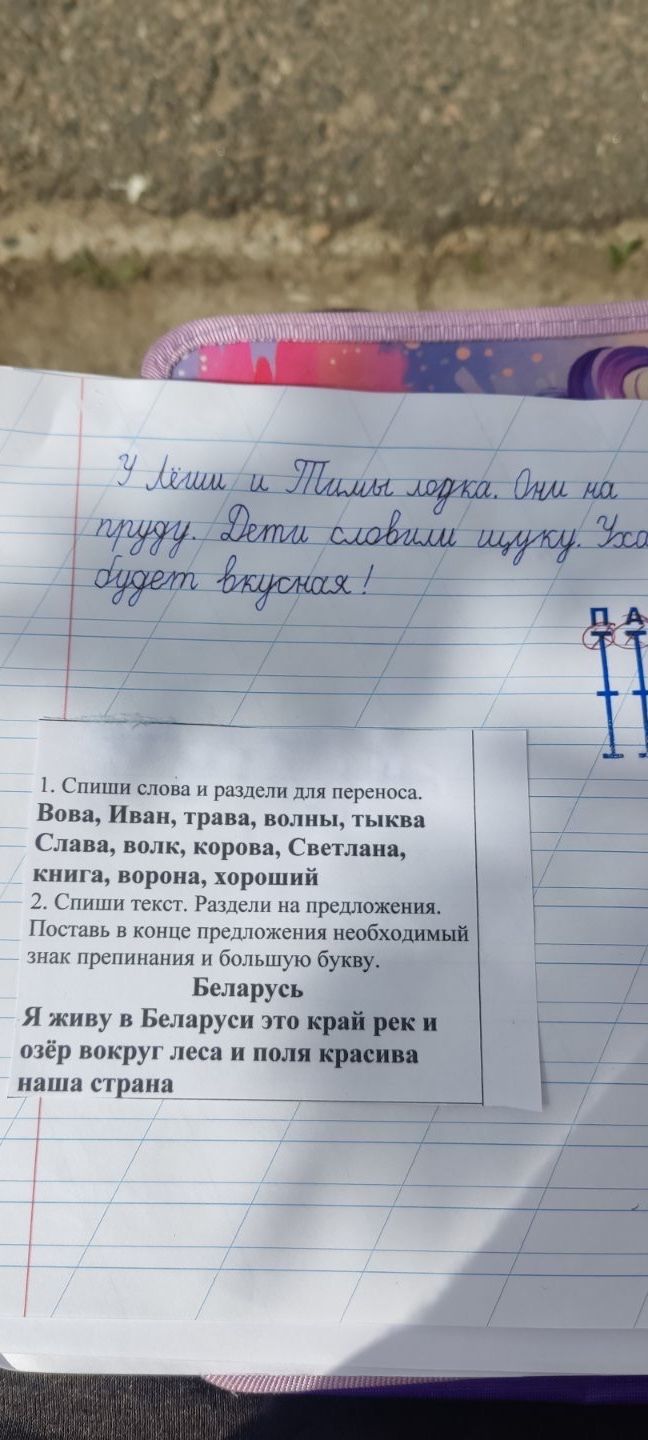 У Лёши и Тимы лодка. Они на
пруду. Дети словили щуку. Уха
будет вкусная!
П А
1. Спиши слова и раздели для переноса.
Вова, Иван, трава, волны, тыква
Слава, волк, корова, Светлана,
книга, ворона, хороший
2. Спиши текст. Раздели на предложения.
Поставь в конце предложения необходимый
знак препинания и большую букву.
Беларусь
Я живу в Беларуси это край рек и
озёр вокруг леса и поля красива
наша страна